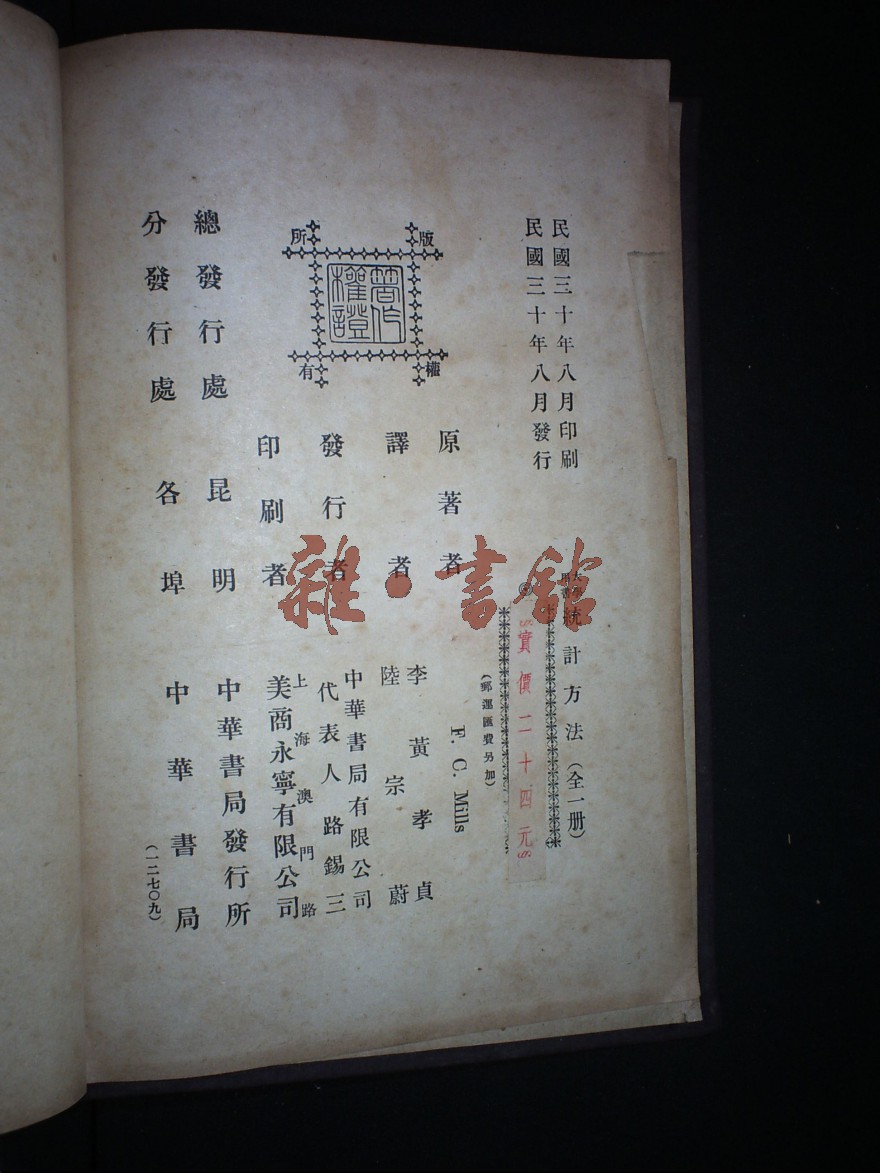 民國三十年八月印刷
民國三十年八月發行
大學用書
統計方法(全一册)
實價二十四元
(郵運匯費另加)
版權所有
著作權證
原著者 F. C. Mills
譯者 李黃孝貞
陸宗蔚
發行者 中華書局有限公司
代表人路錫三
印刷者 上海澳門路
美商永寧有限公司
總發行處 昆明 中華書局發行所
分發行處 各埠 中華書局
(一二七〇九)
雜·書館